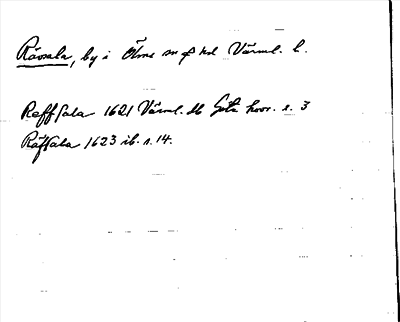 Rävsala, by i Ölme sn o hd Värml. l.
Reffsala 1621 Värml. db Göta hovr. s. 3
Räfsala 1623 ib. s. 14.